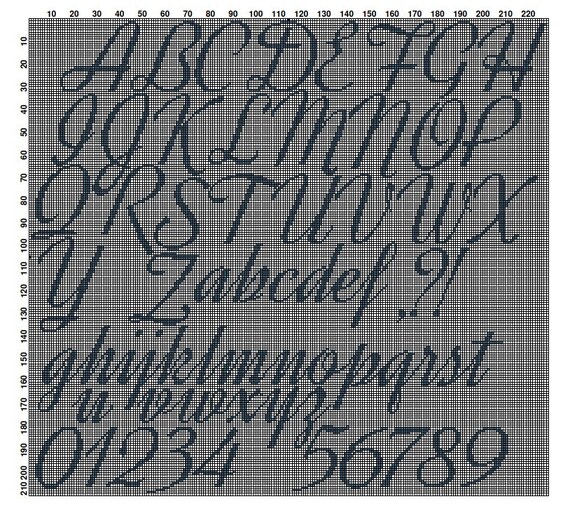 10 20 30 40 50 60 70 80 90 100 110 120 130 140 150 160 170 180 190 200 210 220
10 20 30 40 50 60 70 80 90 100 110 120 130 140 150 160 170 180 190 200 210
A B C D E F G H
I J K L M N O P
Q R S T U V W X
Y Z a b c d e f ? !
g h i j k l m n o p q r s t
u v w x y z
0 1 2 3 4 5 6 7 8 9